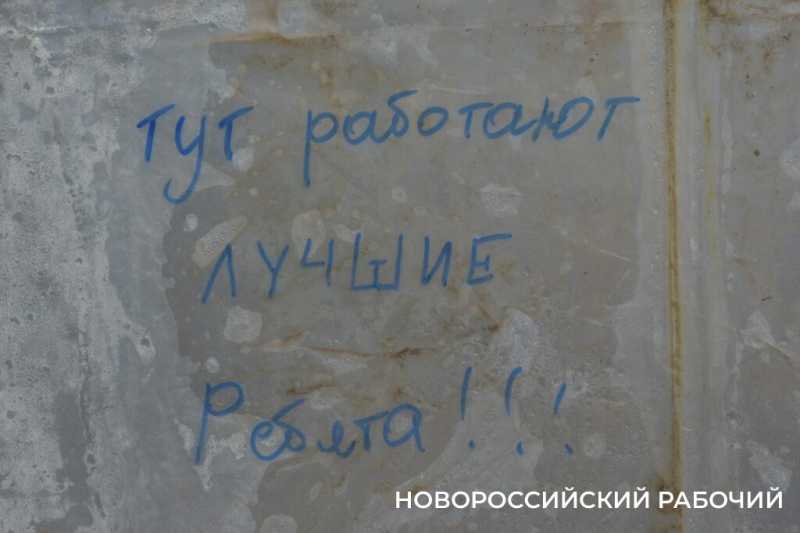 тут работают
лучшие
Ребята!!!
НОВОРОССИЙСКИЙ РАБОЧИЙ